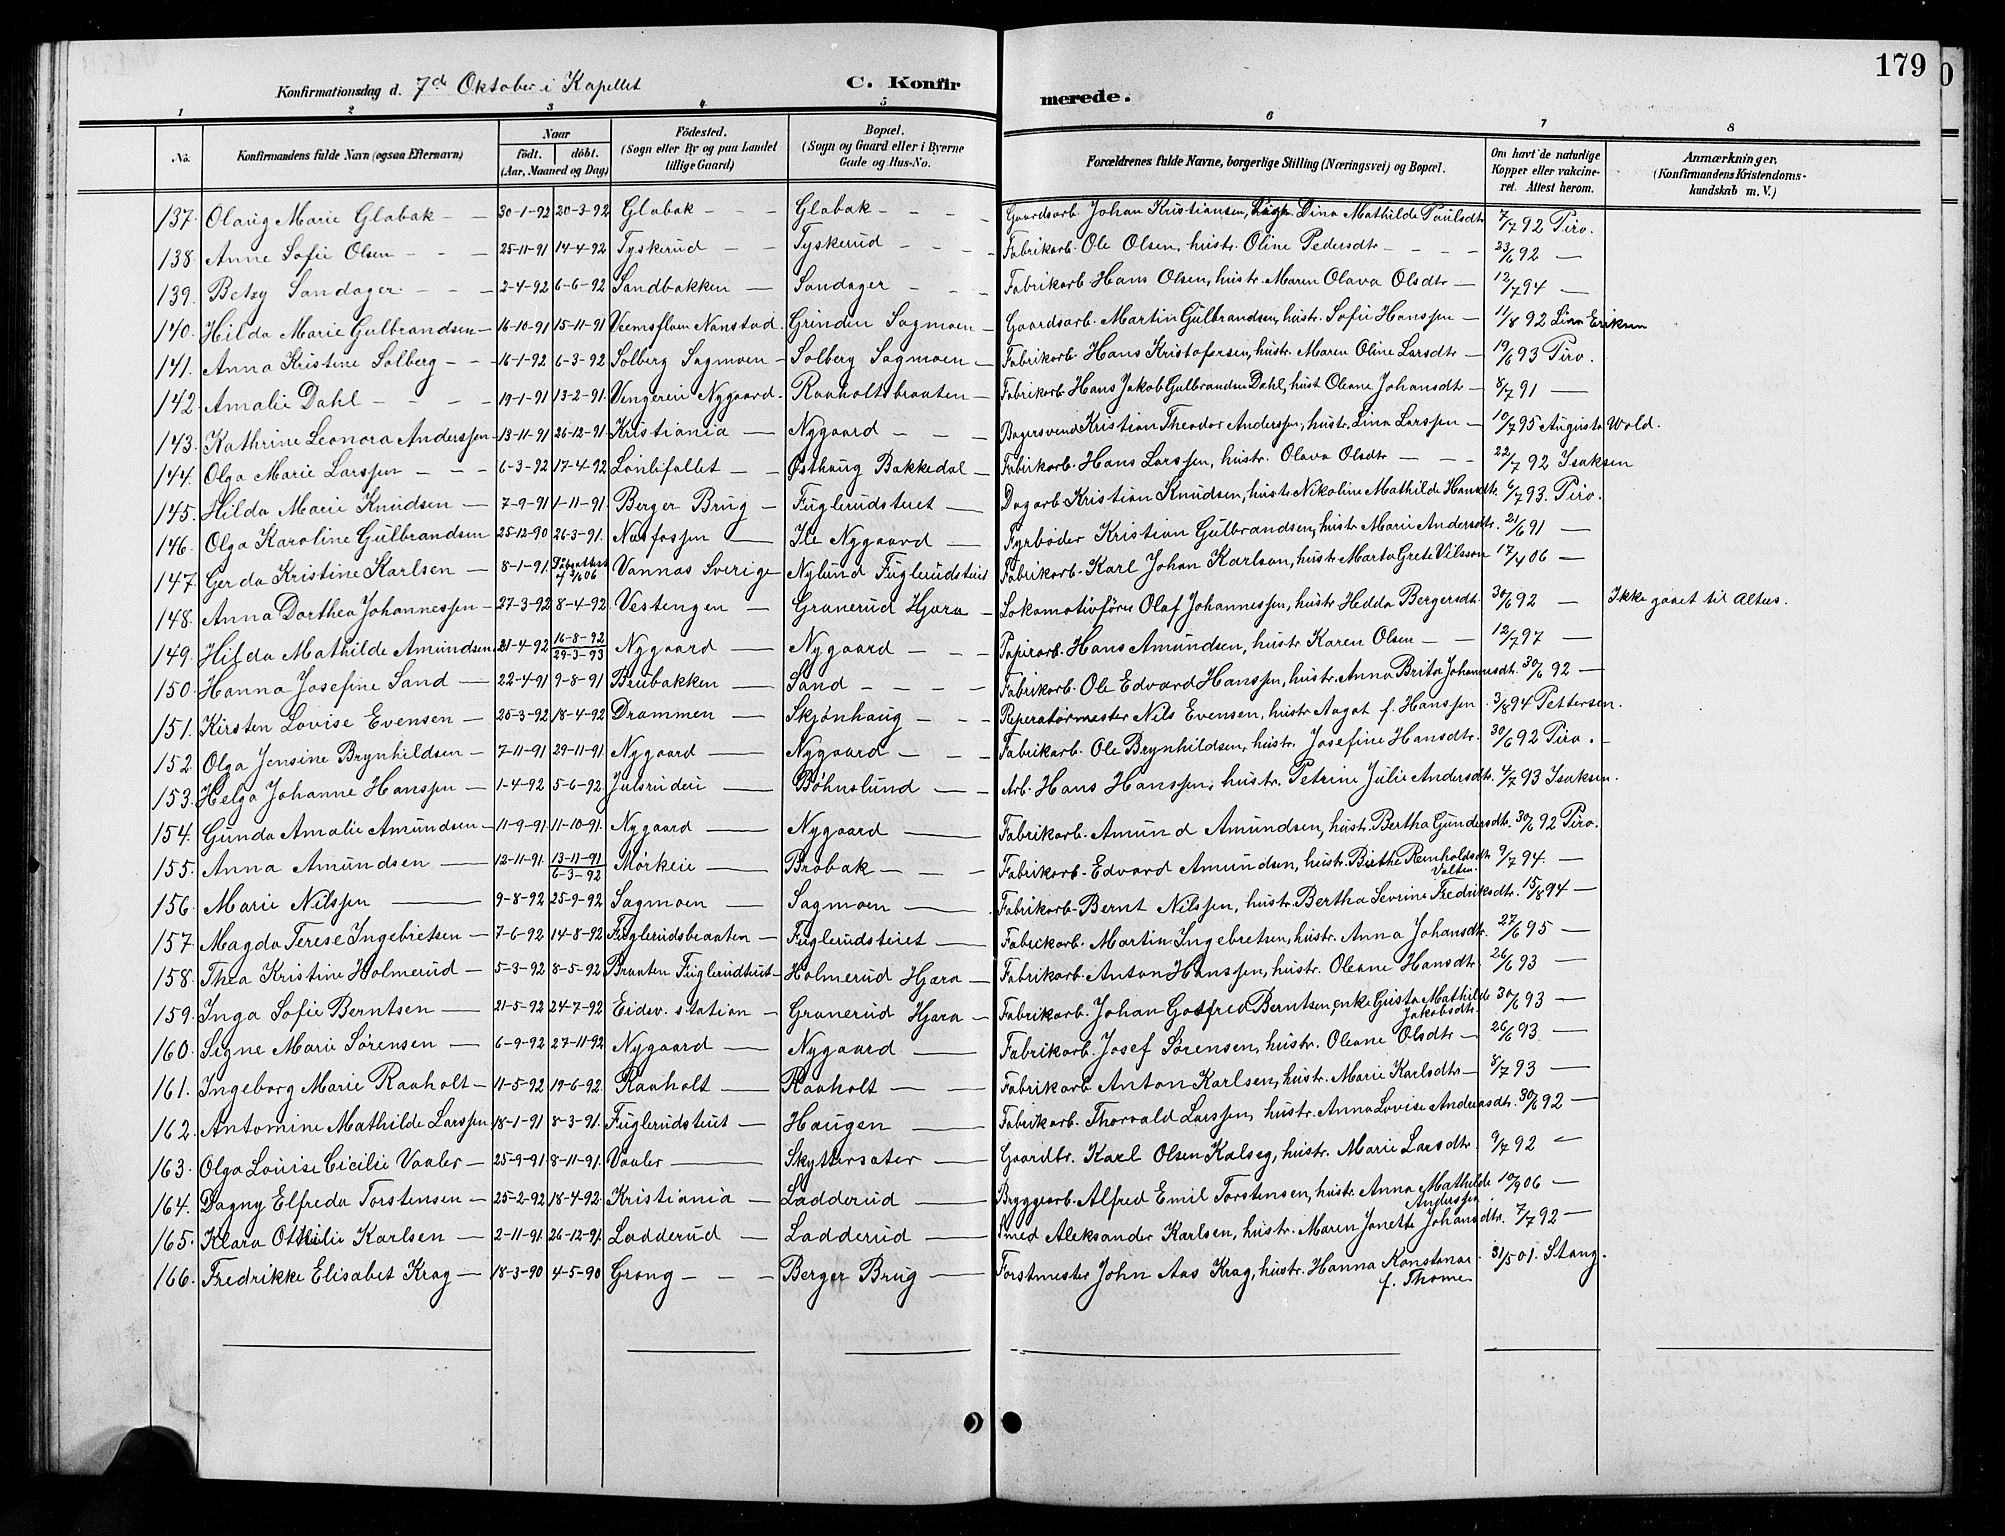 179
Konfirmationsdag d. 7de Oktober i Kapellet C. Konfirmerede.
1 2 3 4 5 6 7 8
No. Konfirmandens fulde Navn (ogsaa Efternavn) Naar født. døbt. (Aar, Maaned og Dag) Fødested. (Sogn eller By og paa Landet tillige Gaard) Bopæl. (Sogn og Gaard eller i Byerne Gade og Hus-No. Forældrenes fulde Navne, borgerlige Stilling (Næringsvei) og Bopæl. Om havt de naturlige Kopper eller vakcineret. Attest herom. Anmærkninger, (Konfirmandens Kristendomskundskab m. V.)
137. Olaug Marie Glabak 30-1-92 20-3-92 Glabak Glabak Gaardsarb. Johan Kristiansen, Dina Mathilde Paulsdtr 7/7 92 Piro.
138. Anne Sofie Olsen 25-11-91 14-4-92 Tyskerud Tyskerud Fabrikarb. Ole Olsen, hustr. Oline Pedersdtr 23/6 92 —
139. Betzy Sandager 2-4-92 6-6-92 Sandbakken Sandager Fabrikarb. Hans Olsen, hustr. Maren Olava Olsdtr 12/7 94 —
140. Hilda Marie Gulbrandsen 16-10-91 15-11-91 Nanstad. Grinden Sagmoen Gaardsarb. Martin Gulbrandsen, hustr. Sofie Hanssen 11/8 92 Lina Eriksen
141. Anna Kristine Solberg 16-1-92 6-3-92 Solberg Sagmoen Solberg Sagmoen Fabrikarb. Hans Kristofersen, hustr. Maren Oline Larsdtr 19/6 93 Piro.
142. Amalie Dahl 19-1-91 13-2-91. Vengereie Nygaard. Raaholtsbraaten Fabrikarb. Hans Jakob Gulbrandsen Dahl, hust. Oleane Johansdtr 8/7 91 —
143. Kathrine Leonora Anderssen 13-11-91 26-12-91. Kristiania Nygaard Bagersvend Kristian Theodor Anderssen, hustr. Lina Larssen 10/7 95 Augusta Wold.
144. Olga Marie Larssen 6-3-92 17-4-92 Lønlifallet Østhaug Bakkedal Fabrikarb. Hans Larssen, hustr. Olava Olsdtr 22/7 92 Isaksen
145. Hilda Marie Knudsen 7-9-91 1-11-91. Berger Brug Fuglerudsteiet Dagarb. Kristian Knudsen, hustr. Nikoline Mathilde Hansdtr. 6/7 93. Piro.
146. Olga Karoline Gulbrandsen 25-12-90 26-3-91. Nasfossen Ile Nygaard Fyrbøder Kristian Gulbrandsen, hustr. Marie Andersdtr. 21/6 91 —
147. Gerda Kristine Karlsen 8-1-91. Vannas Sverige Nylund Fuglerudsteiet Fabrikarb. Karl Johan Karlson, hustr. Marta Grete Vilsson 17/4 06 —
148. Anna Dorthea Johannessen 27-3-92 8-4-92. Vestengen Granerud Hjøra Lokomotivfører Olaf Johannessen, hustr. Hedda Bergersdt. 30/6 92 — Ikke gaaet til Alters.
149. Hilda Mathilde Amundsen 21-4-92 16-8-92 29-3-93 Nygaard Nygaard Papirarb. Hans Amundsen, hustr. Karen Olsen 12/7 97 —
150. Hanna Josefine Sand 22-4-91 9-8-91 Brubakken Sand Fabrikarb. Ole Edvard Hanssen, hustr. Anna Brita Johannesdt. 30/6 92 —
151. Kirsten Lovise Evensen 25-3-92 18-4-92 Drammen Skjønhaug Reperatørmester Nils Evensen, hustr. Aagot f. Hanssen 3/8 94 Pettersen.
152. Olga Jensine Brynhildsen 7-11-91 29-11-91. Nygaard Nygaard Fabrikarb. Ole Brynhildsen, hustr. Josefine Hansdtr. 30/6 92 Piro.
153. Helga Johanne Hanssen 1-4-92 5-6-92 Julsrudeie Bøhnslund Arb. Hans Hanssen, hustr. Petrine Julie Andersdtr. 4/7 93 Isaksen.
154. Gunda Amalie Amundsen 11-9-91 11-10-91. Nygaard Nygaard Fabrikarb. Amund Amundsen, hustr. Bertha Gundersdtr. 30/6 92 Piro.
155. Anna Amundsen 12-11-91. 13-11-91 6-3-92 Mørkeie Brøbak Fabrikarb. Edvard Amundsen, hustr. Birthe Remholdsdtr 9/7 94. —
156. Marie Nilssen 9-8-92 25-9-92 Sagmoen Sagmoen Fabrikarb. Bernt Nilssen, hustr. Bertha Sevrine Fredriksdtr. 15/8 94 —
157. Magda Terese Ingebretsen 7-6-92 14-8-92 Fuglerudsbraaten Fuglerudsteiet Fabrikarb. Martin Ingebretsen, hustr. Anna Johansdtr. 27/6 95 —
158. Thea Kristine Holmerud 5-3-92 8-5-92 Braaten Fuglerudteiet Holmerud Hjøra Fabrikarb. Anton Hanssen, hustr. Oleane Hansdtr 26/6 93 —
159. Inga Sofie Berntsen 21-5-92 24-7-92 Eidsv. station Granerud Hjøra Fabrikarb. Johan Gotfred Berntsen, enke Gusta Mathilde Jakobsdtr. 30/6 93 —
160. Signe Marie Sørensen 6-9-92 27-11-92 Nygaard Nygaard Fabrikarb. Josef Sørensen, hustr. Oleane Olsdtr 26/6 93.
161. Ingeborg Marie Raaholt 11-5-92 19-6-92 Raaholt Raaholt Fabrikarb. Anton Karlsen, hustr. Marie Karlsdtr 8/7 93 —
162. Antomine Mathilde Larssen 18-1-91 8-3-91. Fuglerudsteiet Haugen Fabrikarb. Thorvald Larssen, hustr. Anna Lovise Andreasdtr. 30/6 92 —
163. Olga Louise Cicilie Vaaler 25-9-91 8-11-91. Vaaler Skyttersøter Gaardbr. Karl Olsen Kalseg, hustr. Marie Larsdtr 9/7 92 —
164. Dagny Elfreda Torstensen 25-2-92 18-4-92 Kristiania Ladderud Bryggearb. Alfred Emil Torstensen, hustr. Anna Mathilde Anderssen 10/9 06 —
165. Klara Ottilie Karlsen 2-11-91. 26-12-91. Ladderud Ladderud Smed Aleksander Karlsen, hustr. Maren Janette Johansdtr. 7/7 92 —
166. Fredrikke Elisabet Krag 18-3-90 4-5-90 Grong Berger Brug Forstmester John Aas Krag, hustr. Hanna Konstanse f. Thome 31/5 01. Stang.